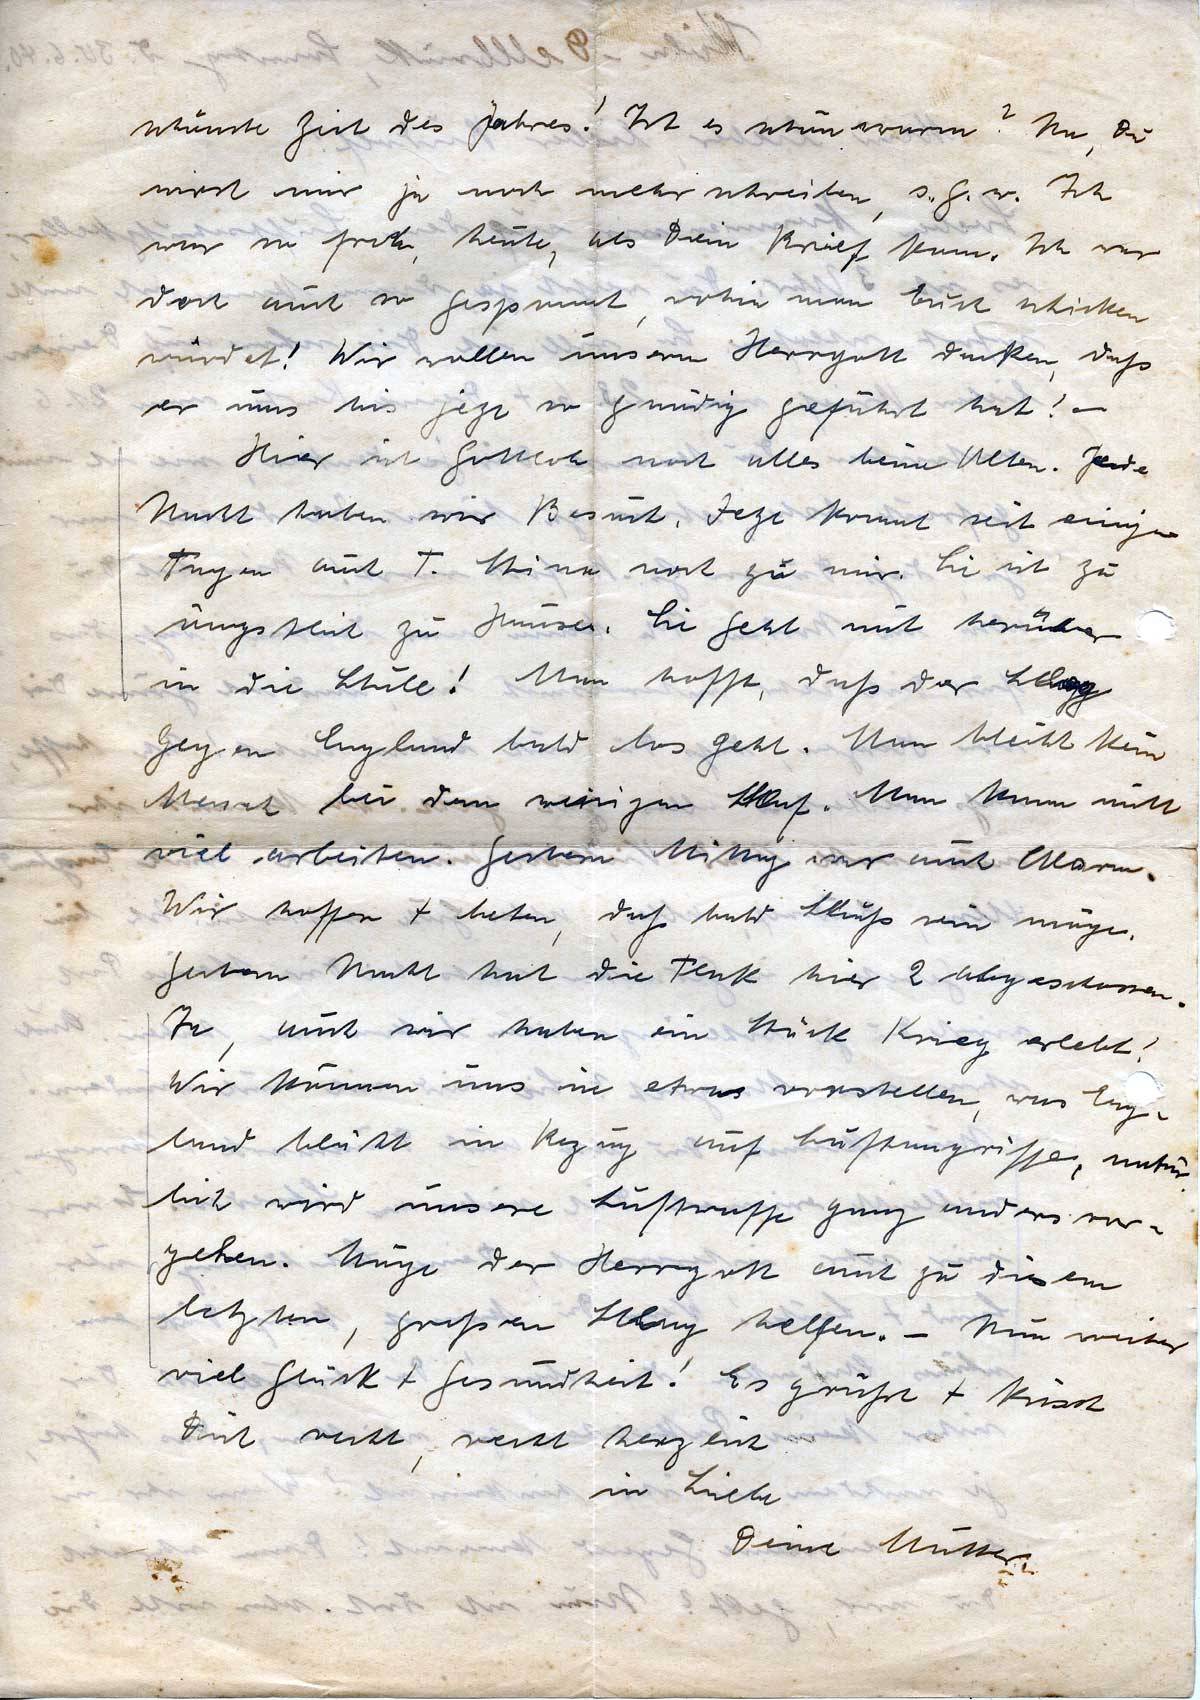 schönste Zeit des Jahres! Ist es schön warm? Na, Du
wirst mir ja noch mehr schreiben, s.G.w. Ich
war so froh, heute, als Dein Brief kam. Ich war
doch auch so gespannt, wohin man Euch schicken
würdet! Wir wollen unserm Herrgott danken, daß
er uns bis jetzt so gnädig geführt hat! –
Hier ist Gottlob noch alles beim Alten. Jede
Nacht haben wir Besuch. Jetzt kommt seit einigen
Tagen auch T. Stina noch zu mir. Sie ist zu
ängstlich zu Hause. Sie geht mit herüber
in die Schule! Man hofft, daß der Schlag
gegen England bald los geht. Man bleibt kein
Mensch bei dem wenigen Schlaf. Man kann nicht
viel arbeiten. Gestern Mittag war auch Alarm.
Wir hoffen + beten, daß bald Schluß sein möge.
Gestern Nacht hat die Flak hier 2 abgeschossen.
Ja, auch wir haben ein Stück Krieg erlebt!
Wir können uns so etwas vorstellen, was Eng-
land blüht in Bezug auf Luftangriffe, natür-
lich wird unsere Luftwaffe ganz anders vor-
gehen. Möge der Herrgott auch zu diesem
letzten, großen Schlag helfen. – Nun weiter
viel Glück + Gesundheit! Es grüßt + küsst
Dich recht, recht herzlich
in Liebe
Deine Mutter.